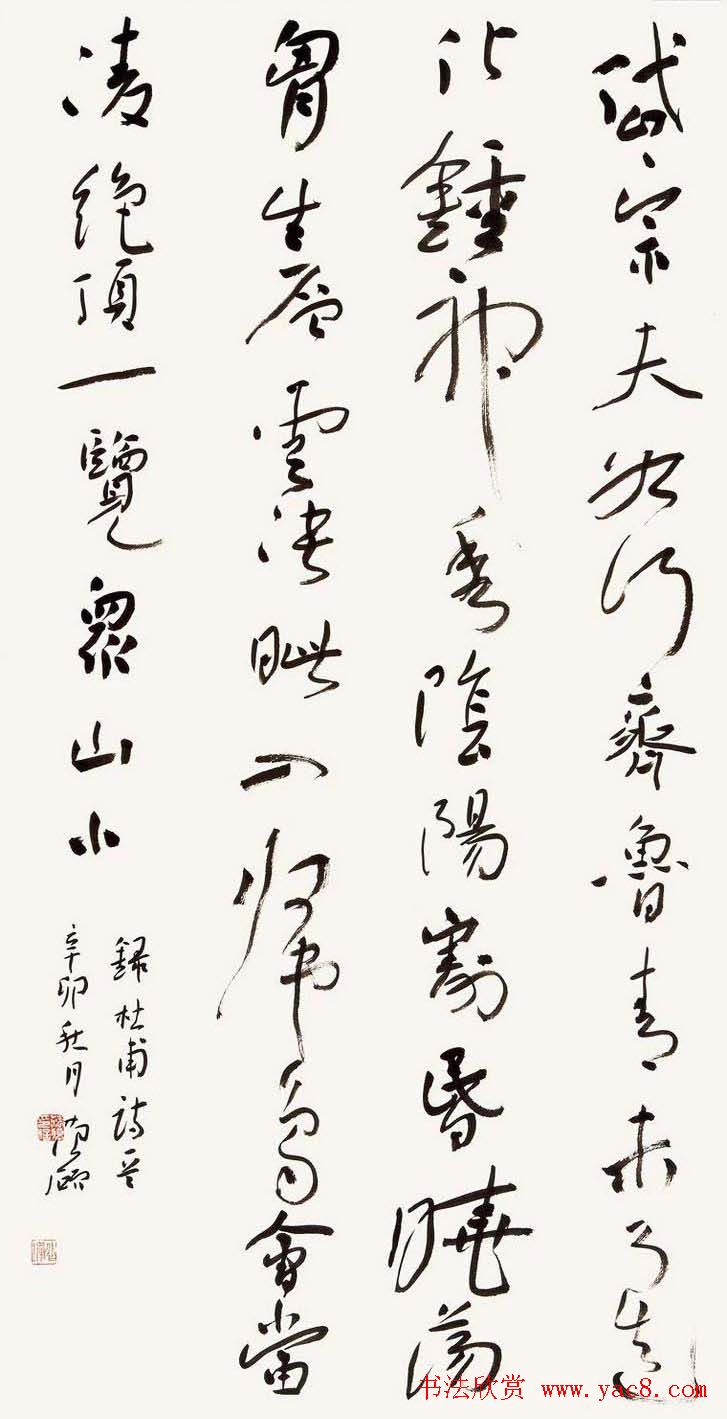 岱宗夫如何齊魯青未了造
化鍾神秀陰陽割昏曉蕩
胷生層雲決眦入歸鳥會當
凌絕頂一覽眾山小
錄杜甫詩
辛卯秋月
书法欣赏 www.yac8.com